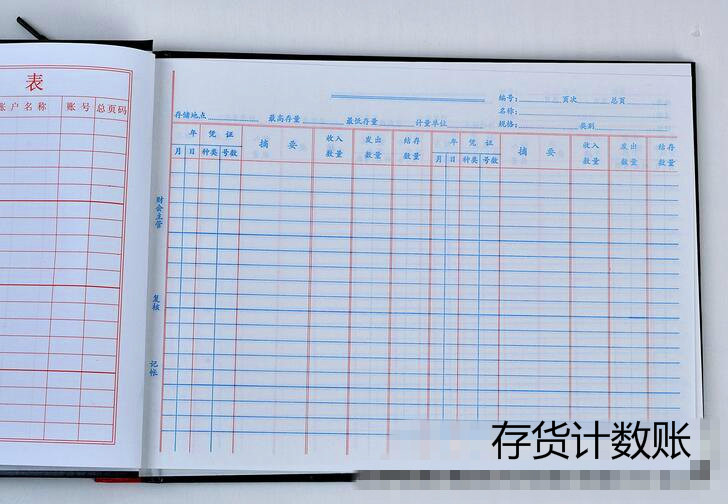 表
账户名称 账号 总页码
编号: 页次 总页
名称:
存储地点 最高存量 最低存量 计量单位 规格: 类别
年 凭证 摘要 收入 发出 结存 年 凭证 摘要 收入 发出 结存
月 日 种类 号数 数量 数量 数量 月 日 种类 号数 数量 数量 数量
财会主管
复核
记帐
存货计数账